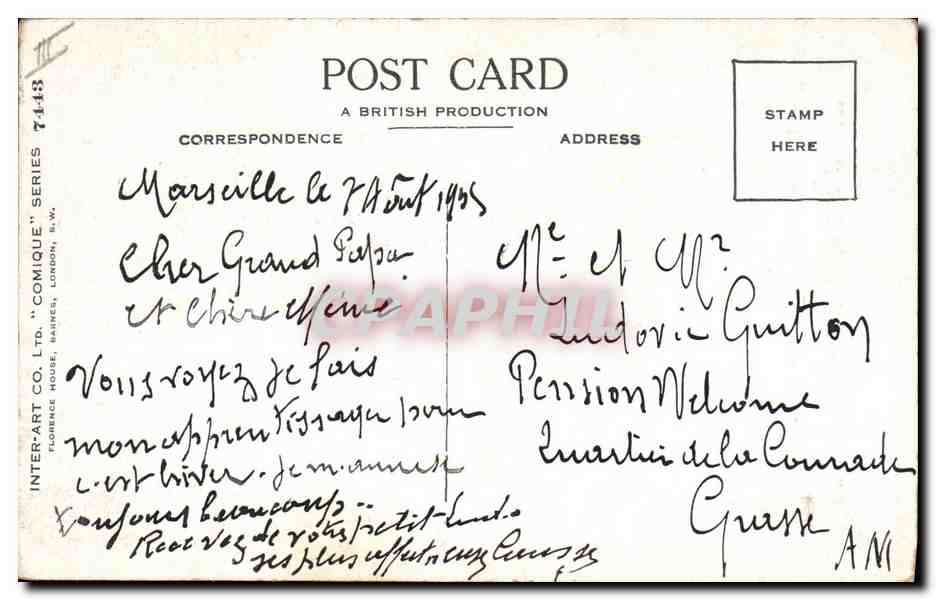 III
INTER-ART CO. LTD. "COMIQUE" SERIES 7443
FLORENCE HOUSE, BARNES, LONDON, S.W.
POST CARD
A BRITISH PRODUCTION
CORRESPONDENCE
ADDRESS
STAMP
HERE
Marseille le 7 Août 1935
Cher Grand Papa
et chère Mémé
Vous voyez je fais
mon apprentissage pour
c'est hiver. Je m'amuse
toujours beaucoup..
de votre petit Ludo
ses plus affectueuses
Me et Mr
Ludovic Guitton
Pension Welcome
Quartier de la
Grasse
CPAPHIL